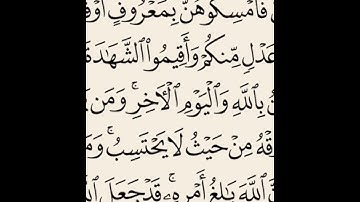 فَأَمْسِكُوهُنَّ بِمَعْرُوفٍ أَوْ
عَدْلٍ مِّنكُمْ وَأَقِيمُوا۟ ٱلشَّهَٰدَةَ
بِٱللَّهِ وَٱلْيَوْمِ ٱلْءَاخِرِ ۚ وَمَن
مِنْ حَيْثُ لَا يَحْتَسِبُ ۚ وَمَن
ٱللَّهَ بَٰلِغُ أَمْرِهِۦ ۚ قَدْ جَعَلَ